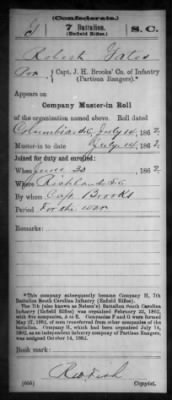 (Confederate.)
G 7 Battalion, S. C.
(Enfield Rifles).
Robert Gates
Capt. J. H. Brooks' Co. of Infantry
(Partisan Rangers).*
Appears on
Company Muster-in Roll
of the organization named above. Roll dated
Columbia S.C. July 14, 1862.
Muster-in to date July 14, 1862.
Joined for duty and enrolled:
When June 23, 1862.
Where Richland S.C.
By whom Capt Brooks
Period For the war
Remarks:
*This company subsequently became Company H, 7th
Battalion South Carolina Infantry (Enfield Rifles).
The 7th (also known as Nelson's) Battalion South Carolina
Infantry (Enfield Rifles) was organized February 22, 1862,
with five companies, A to E. Companies F and G were formed
May 17, 1862, of men transferred from other companies of the
battalion. Company H, which had been organized July 14,
1862, as an independent infantry company of Partisan Rangers,
was assigned October 14, 1862.
Book mark:
Copyist.